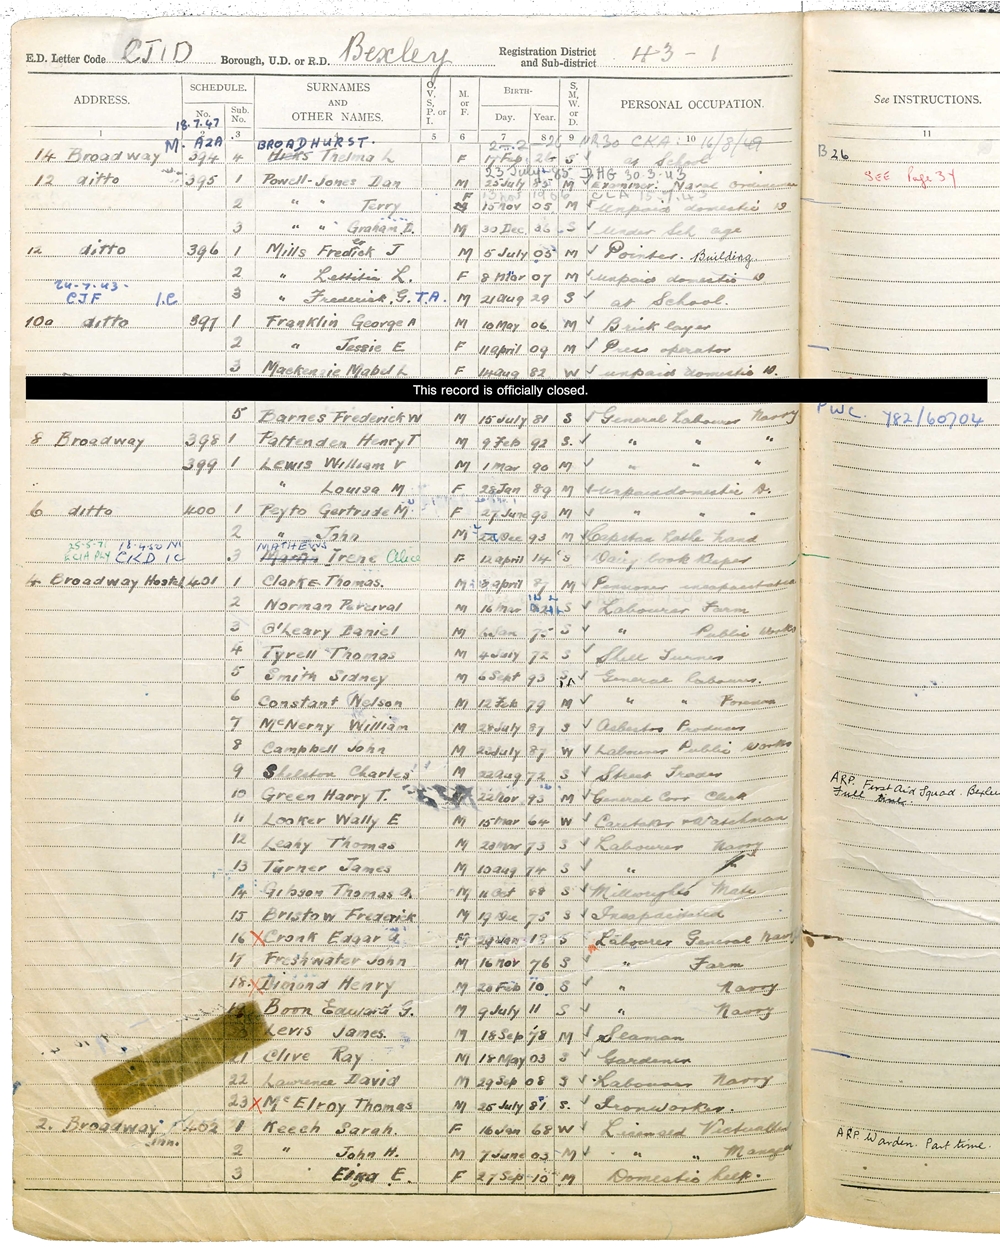 E.D. Letter Code CJID Borough, U.D. or R.D. Bexley Registration District and Sub-district 43-1
ADDRESS. SCHEDULE. No. Sub. No. SURNAMES AND OTHER NAMES. O, V, S, P. or I. M. or F. BIRTH- Day. Year. S, M, W, or D. PERSONAL OCCUPATION. See INSTRUCTIONS.
1 2 3 4 5 6 7 8 9 10 11
18.7.47
M. A2A BROADHURST. 16/8/49
14 Broadway 394 4 Thelma L F 17 Feb 26 S at School B26
23 July 85 DHG 30.3.43
12 ditto 395 1 Powell-Jones Dan M 25 July 85 M Examiner. Naval Ordinance SEE Page 34
2 " " Terry 15 Nov 05 M unpaid domestic D
3 " " Graham D. M 30 Dec 36 S under Sch age
12 ditto 396 1 Mills Fredick J M 5 July 05 M Pointer. Building
2 " Lettitia L. F 8 Mar 07 M unpaid domestic D
24-7-43- CJF I.C 3 " Frederick. G. T.A. M 21 Aug 29 S at School.
10a ditto 397 1 Franklin George A M 10 May 06 M Bricklayer
2 " Jessie E F 11 April 09 M Press operator
3 Mackenzie Mabel L F 14 Aug 82 W unpaid domestic D.
This record is officially closed.
5 Barnes Frederick W M 15 July 81 S General Labourer Navvy PWC. Y82/60704
8 Broadway 398 1 Pattenden Henry T M 9 Feb 92 S. " " "
399 1 Lewis William V M 1 Mar 90 M " " "
" Louisa M F 28 Jan 89 M unpaid domestic D.
6 ditto 400 1 Peyto Gertrude M. F 27 June 93 M " " "
2 " John M Dec 93 M Capstan Lathe Hand
MATHEWS
3 Martin Irene Alice F 12 April 14 S Dairy book keeper
4 Broadway Hostel 401 1 Clarke Thomas. M 8 April 87 M Pensioner incapacitated
2 Norman Percival M 16 Mar S Labourer Farm
3 O'Leary Daniel M Jan 75 S " Public Works
4 Tyrell Thomas M 4 July 72 S Shell Turner
5 Smith Sidney M 6 Sept 93 General Labourer.
6 Constant Nelson M 12 Feb 79 M " " Foreman
7 McNerny William M 28 July 87 S Asbestos Producer
8 Campbell John M 22 July 87 W Labourer Public Works
9 Shelston Charles M 22 Aug 72 S Street Trader
10 Green Harry T. M 22 Nov 93 M General Corr Clerk ARP. First Aid Squad. Bexley
Full time.
11 Looker Wally E M 15 Mar 64 W Caretaker & Watchman
12 Leahy Thomas M 28 Mar 73 S Labourer Navvy
13 Turner James M 10 Aug 74 S "
14 Gibson Thomas A. M 11 Oct 88 S Millwrights Mate
15 Bristow Frederick M 17 Dec 75 S Incapacitated
16 X Cronk Edgar A M Jan S Labourer General Navvy
17 Freshwater John M 16 Nov 76 S " Farm
18 X Dimond Henry M 20 Feb 10 S " Navvy
Boon Edward G. M 9 July 11 S " Navvy
Levis James. M 18 Sep 78 M Seaman
21 Clive Ray M 18 May 03 S Gardener
22 Lawrence David M 29 Sep 08 S Labourer Navvy
23 X McElroy Thomas M 25 July 81 S. Ironworker.
2. Broadway Inn. 402 1 Keech Sarah. F 16 Jan 68 W Licensed Victualler
2 " John H. M 7 June 03 M " " Manager ARP Warden. Part time.
3 " E. F 27 Sep 10 M Domestic help.